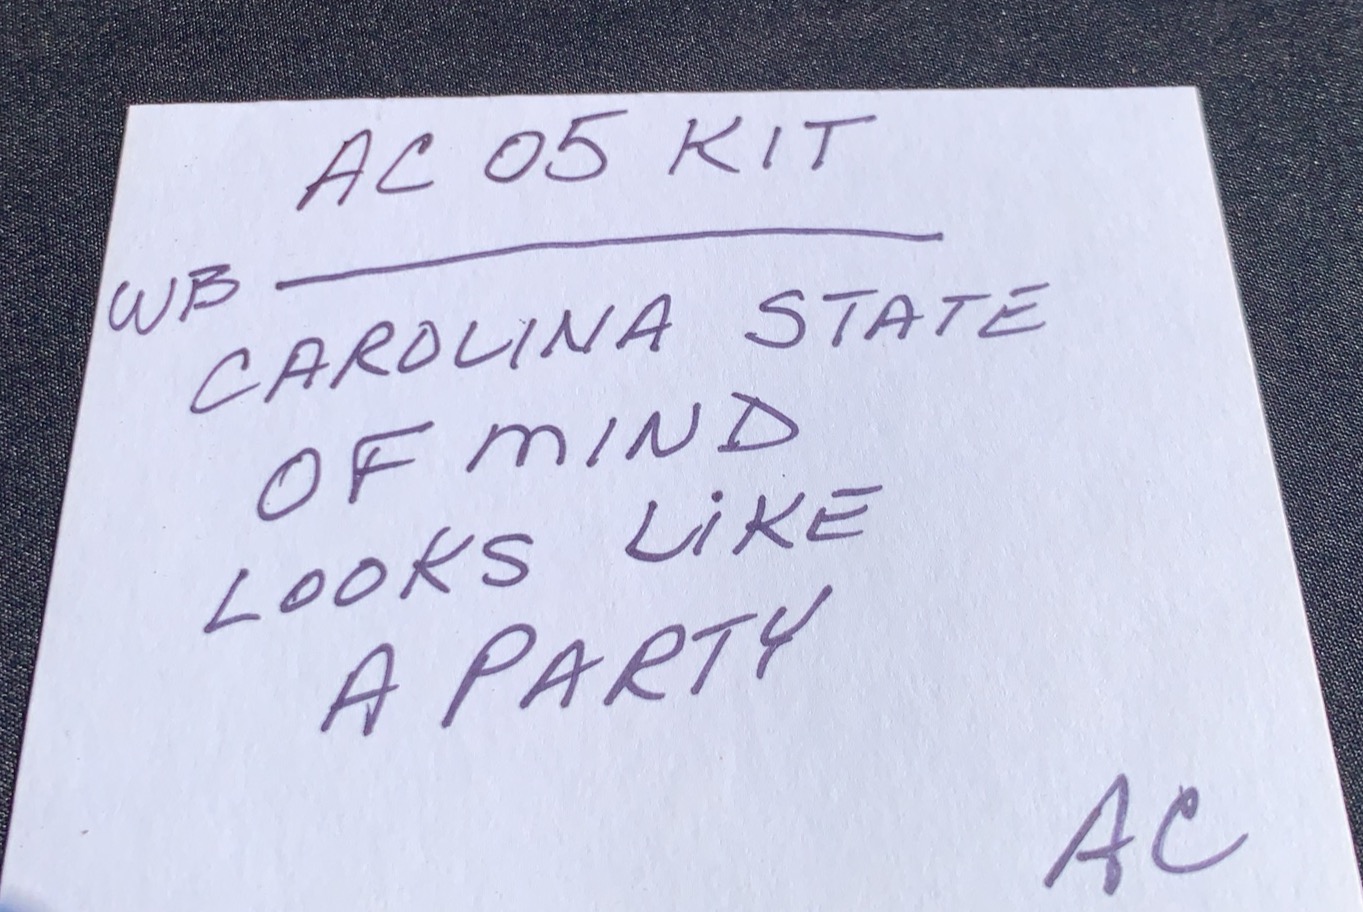 AC 05 KIT
WB
CAROLINA STATE
OF MIND
LOOKS LIKE
A PARTY
AC